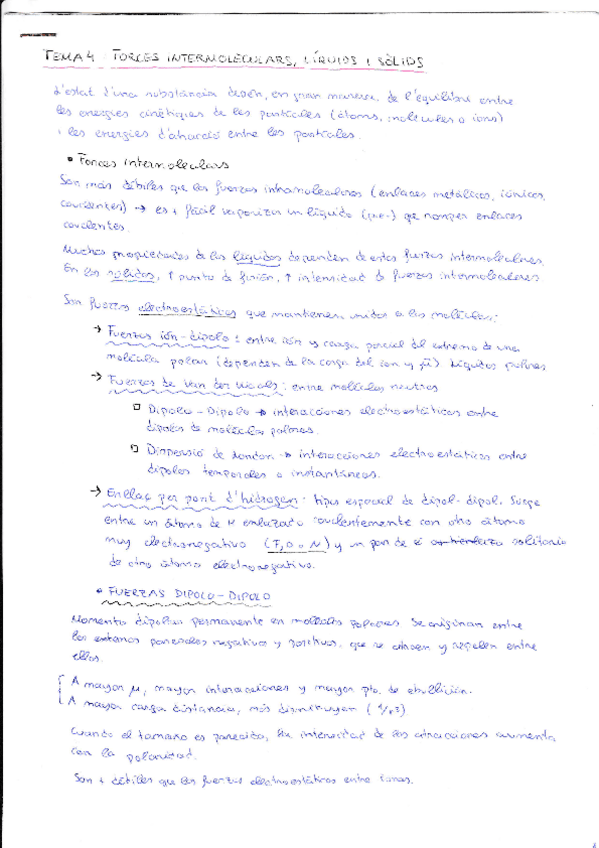 TEMA 4: FORCES INTERMOLECULARS, LÍQUIDS I SÒLIDS
L'estat d'una substància depèn, en gran manera, de l'equilibri entre
les energies cinètiques de les partícules (àtoms, molècules o ions)
i les energies d'atracció entre les partícules.
• Forces intermoleculars
Son más débiles que las fuerzas intramoleculares (enlaces metálicos, iónicos,
covalentes) → es + fácil vaporizar un líquido (que) que romper enlaces
covalentes.
Muchas propiedades de los líquidos dependen de estas fuerzas intermoleculares.
En los sólidos, ↑ punto de fusión, ↑ intensidad de fuerzas intermoleculares
Son fuerzas electroestáticas que mantienen unidas a las moléculas:
→ Fuerzas ión-dipolo: entre ión y carga parcial del extremo de una
molécula polar (dependen de la carga del ion y μ) Líquidos polares
→ Fuerzas de Van der Waals: entre moléculas neutras
□ Dipolo-Dipolo → interacciones electroestáticas entre
dipolos de moléculas polares.
□ Dispersió de London → interacciones electroestáticas entre
dipolos temporales o instantáneos.
→ Enllaç per pont d'hidrogen: tipus especial de dipol-dipol. Surge
entre un átomo de H enlazado covalentemente con otro átomo
muy electronegativo (F, O o N) y un par de e⁻ solitario
de otro átomo electronegativo.
• FUERZAS DIPOLO-DIPOLO
Momento dipolar permanente en moléculas polares. Se originan entre
los extremos parciales negativos y positivos, que se atraen y repelen entre
ellos.
A mayor μ, mayor interacciones y mayor pto. de ebullición.
A mayor carga distancia, más disminuyen (1/r3)
Cuando el tamaño es parecido, la intensidad de las atracciones aumenta
con la polaridad.
Son + débiles que las fuerzas electroestáticas entre iones.